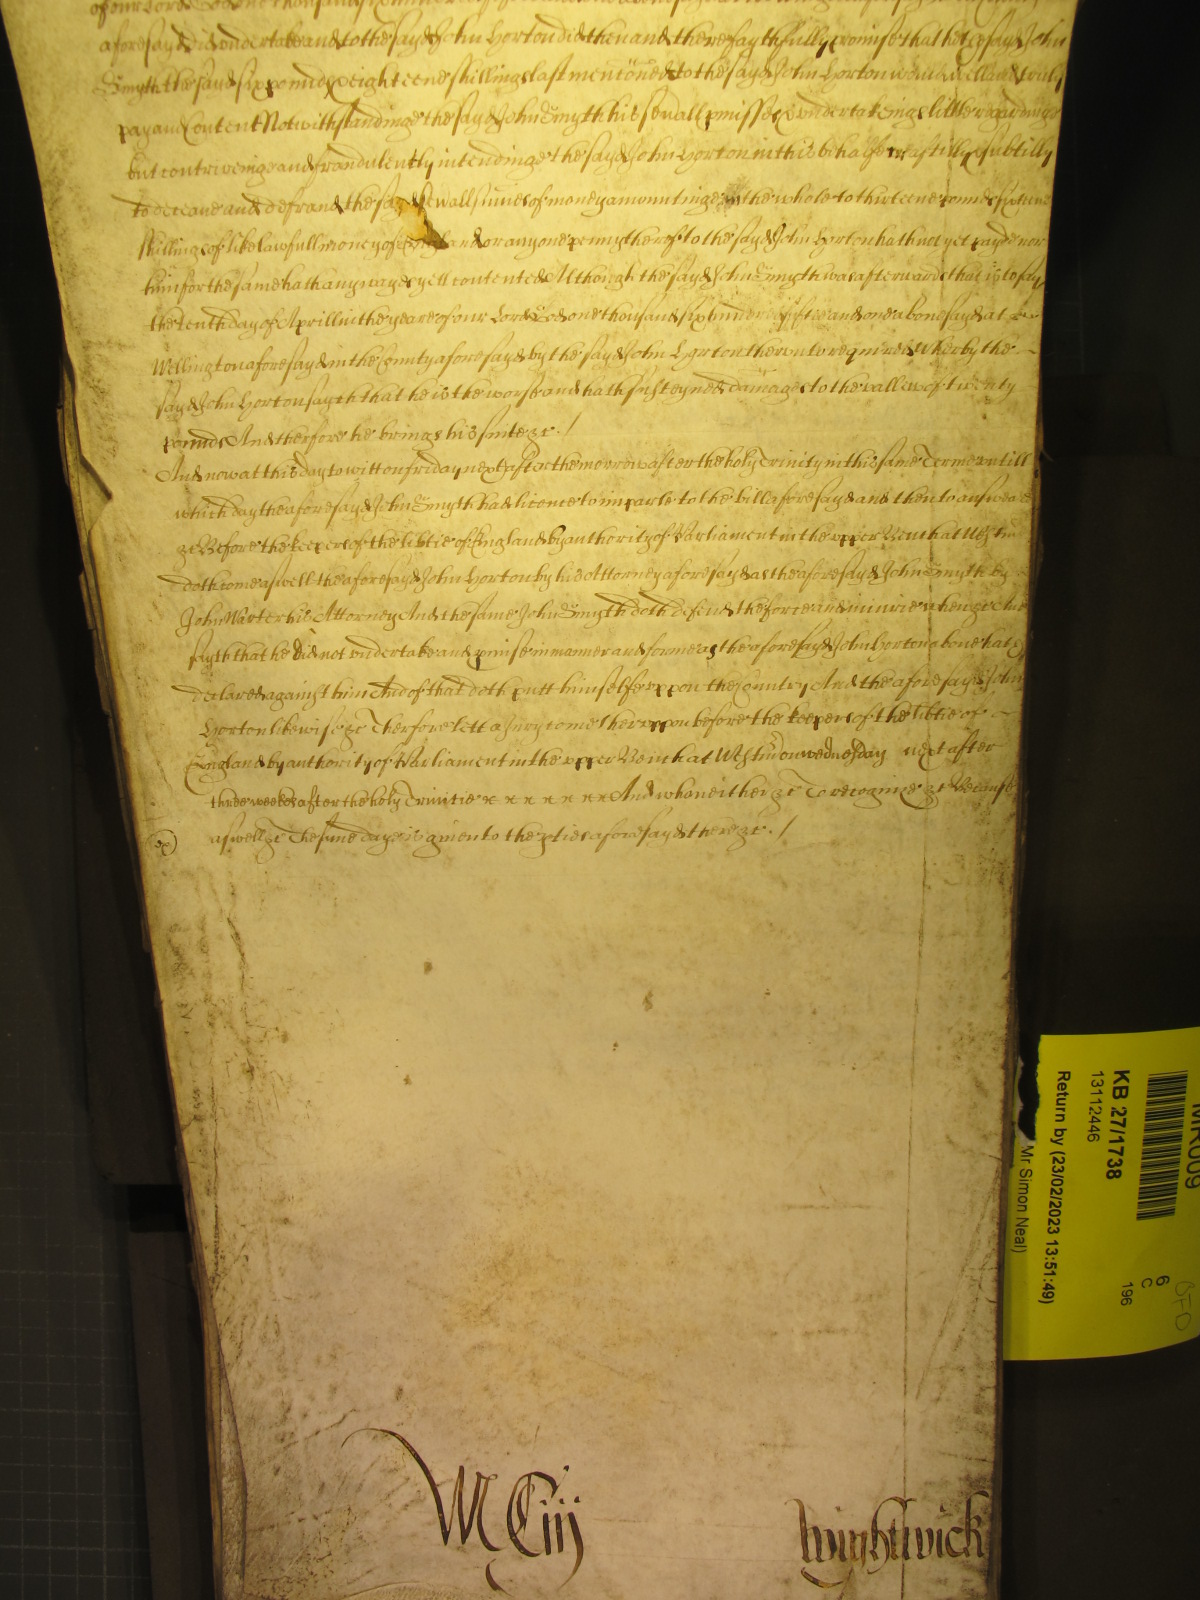 of our Lord God one thousand six hundred
aforesayd did undertake and to the sayd John Horton did then and there faythfully promise that hee the sayd John
Smyth the sayd six pounds & eighteene shillings last mentioned to the sayd John Horton would well and truly
pay and Content Notwithstandinge the sayd John Smyth his sevall pmisses & undertakeings little regardinge
but contriveinge and fraudulently intendinge the sayd John Horton in this behalfe craftily & subtilly
to deceave and defraud the sayd sevall sumes of money amountinge in the whole to thirteene pounds sixteene
shillings of like lawfull money of England or any one penny therof to the sayd John Horton hath not yet payd nor
him for the same hath any wayes yett contented Although the sayd John Smyth was afterwards that is to say
the tenth day of Aprill in the yeare of our Lord God one thousand six hundred fiftie and one abovesayd at
Wellington aforesayd in the County aforesayd by the sayd John Horton therunto required Wherby the
sayd John Horton sayth that he is the worse and hath susteyned damages to the vallew of twenty
pounds And therfore he brings his suite &c. /
And now at this day to witt on friday next after the morrow after the holy Trinity in this same Terme untill
which day the aforesayd John Smyth had licence to imparle to the bill aforesayd and then to answeare
&c Before the keepers of the libtie of England by authority of Parliament in the upper Bench at Westm
doth come aswell the aforesayd John Horton by his Attorney aforesayd as the aforesayd John Smyth by
John Warter his Attorney And the same John Smyth doth defend the force and iniurie when &c And
sayth that he did not undertake and pmise in manner and forme as the aforesayd John Horton above hath
declared against him And of that doth putt himselfe uppon the Country And the aforesayd John
Horton likewise &c Therfore lett a Jury come theruppon before the keepers of the libtie of
England by authority of Parliament in the upper Bench at Westm on wednesday next after
three weekes after the holy Trinitie x x x x x x And who neither &c To recognize &c Because
aswell &c The same day is given to the pties aforesayd there &c. /
M Ciij
Wightwick
MR009
KB 27/1738
13112446
Return by (23/02/2023 13:51:49)
Mr Simon Neal)
6
C
196